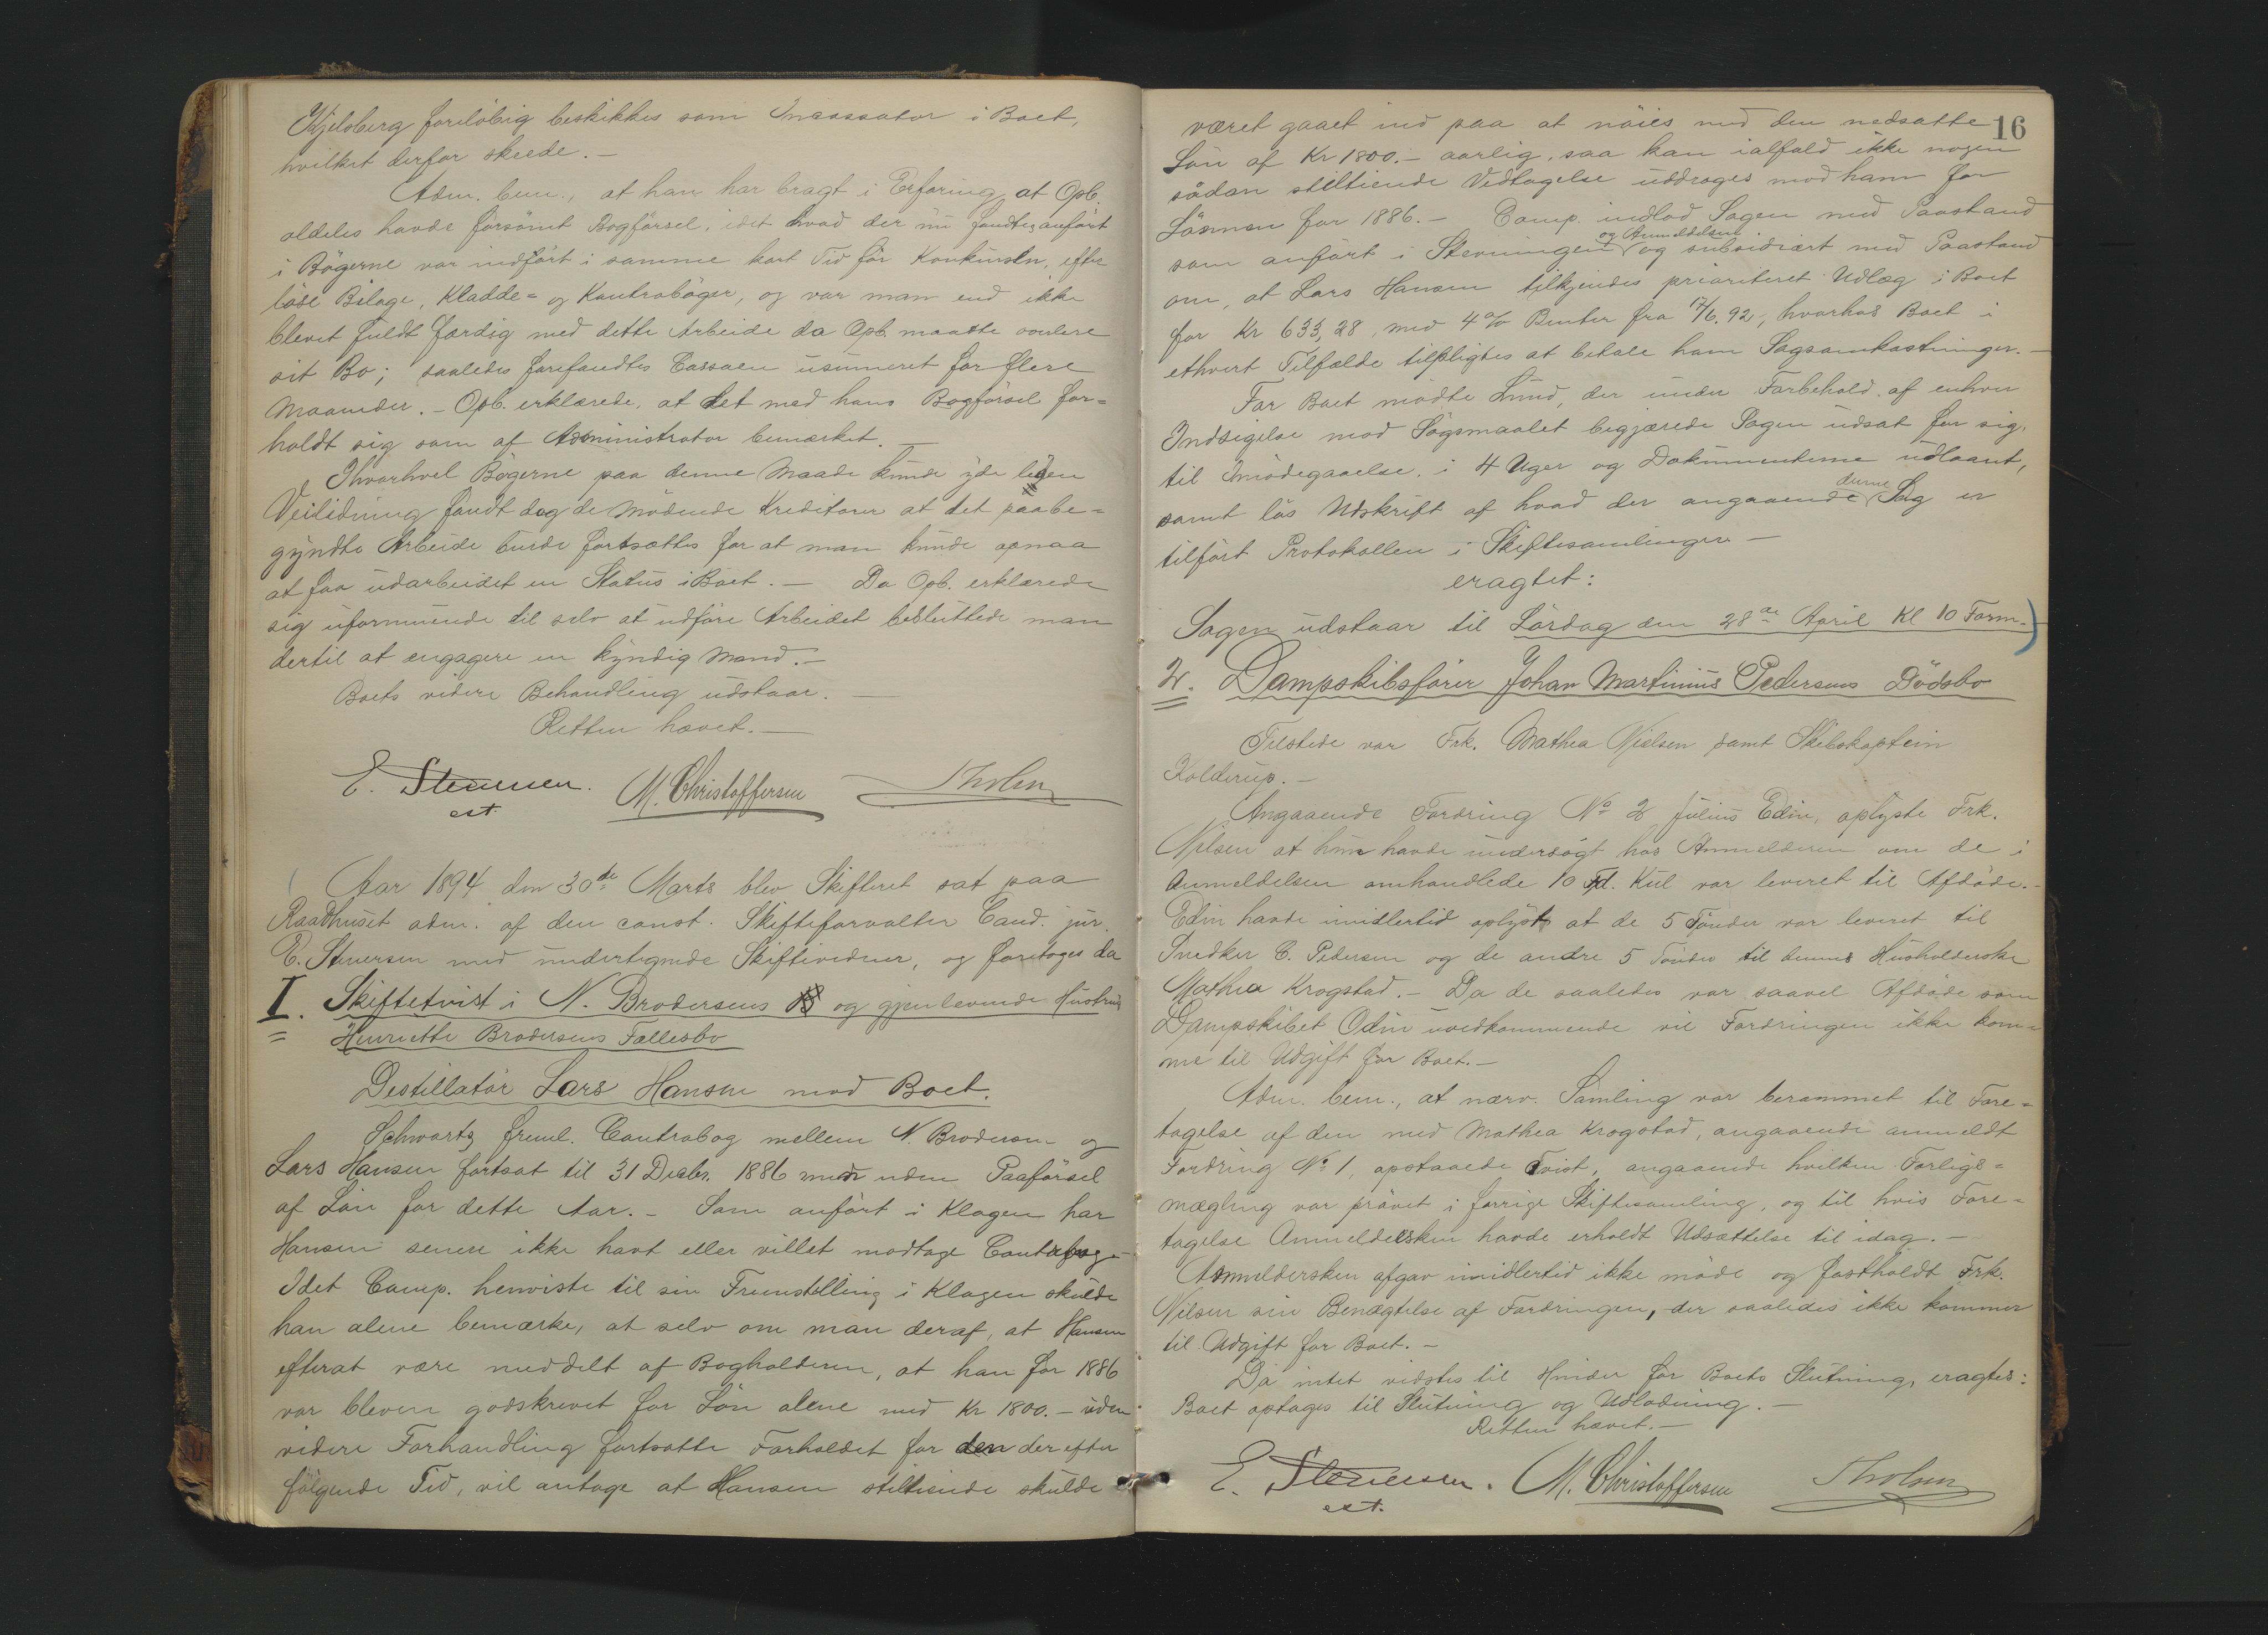 Kjelsberg foreløbig beskikkes som Incassator i Boet,
hvilket derfor skeede.-
Adm. bem., at han har bragt i Erfaring at Opb.
aldeles havde forsömt Bogförsel, idet hvad der nu fandtes anfört
i Bögerne var indfört i samme kort Tid för Konkursen, efter
löse Bilage, Kladde= og Kontrabøger, og var man end ikke
blevet fuldt færdig med dette Arbeide da Opb. maatte
sit Bo; saaledes forefandtes Cassaen usumeret for flere
Maaneder.- Opb. erklærede, at det med hans Bogförsel for=
holdt sig som af Administrator bemærket.-
Ihvorhvel Bögerne paa denne Maade kunde yde liden
Veiledning fandt dog de mödende Kreditorer at det paabe=
gyndte Arbeide burde fortsættes for at man kunde opnaa
at faa udarbeidet en Status i Boet.- Da Opb. erklærede
sig uformuende til selv at udföre Arbeidet besluttede man
dertil at engagere en kyndig Mand.-
Boets videre Behandling udstaar.-
Retten hævet.-
E. Stenersen. M. Christoffersen Tholsen
cst.
Aar 1894 den 30de Marts blev Skifteret sat paa
Raadhuset adm. af den const. Skifteforvalter Cand. jur.
E. Stenersen med undertegnede Skiftevidner, og foretoges da
I. Skiftetvist i N. Brodersens og gjenlevende Hustru
Henriette Brodersens Fællesbo
Destillatör Lars Hansen mod Boet.
Schwartz freml. Contrabog mellem N. Brodersen og
Lars Hansen fortsat til 31 Decbr. 1886 men uden Paaförsel
af Lön for dette Aar.- Som anfört i Klagen har
Hansen senere ikke havt eller villet modtage Contrabog-
Idet Comp. henviste til sin Fremstilling i Klagen skulde
han alene bemærke, at selv om man deraf, at Hansen
efterat være meddelt af Bogholderen, at han for 1886
var bleven godskrevet for Lön alene med Kr 1800.- uden
videre Forhandling fortsatte Forholdet for den derefter
fölgende Tid, vil antage at Hansen stiltiende skulde
16
været gaaet ind paa at nöies med den nedsatte
Lön af Kr 1800.- aarlig, saa kan ialfald ikke nogen
sådan stiltiende Vedtagelse uddrages mod ham for
Lönnen for 1886.- Comp. indlod Sagen med Paastand
og Anmeldelsen
som anfört i Stevningen og subsidiært med Paastand
om, at Lars Hansen tilkjendes prioriteret Udlæg i Boet
for Kr 633,28 med 4% Renter fra 17/6.92, hvorhos Boet i
ethvert Tilfælde tilpligtes at betale ham Sagsomkostninger.-
For Boet mödte Lund, der under Forbehold af enhver
Indsigelse mod Sögsmaalet begjærede Sagen udsat for sig,
til Imödegaaelse, i 4 Uger og Dokumenterne udlaant,
denne
samt lös Udskrift af hvad der angaaende Sag er
tilfört Protokollen i Skiftesamlingen-
eragtet:
Sagen udstaar til Lördag den 28de April Kl 10 Form.
2. Dampskibsförer Johan Martinius Pedersens Dödsbo
Tilstede var Frk. Mathea Nielsen samt Skibskaptein
Kolderup.-
Angaaende Fordring No 2 Julius Edin, oplyste Frk.
Nielsen at hun havde undersögt hos Anmelderen om de i
Anmeldelsen omhandlede 10 Td. Kul var leveret til Afdöde.-
Edin havde imidlertid oplyst at de 5 Tönder var leveret til
Snedker C. Pedersen og de andre 5 Tönder til dennes Husholderske
Mathea Krogstad.- Da de saaledes var saavel Afdöde som
Dampskibet Odin uvedkommende vil Fordringen ikke kom=
me til Udgift for Boet.-
Adm. bem., at nærv. Samling var berammet til Fore=
tagelse af den med Mathea Krogstad, angaaende anmeldt
Fordring No 1, opstaaede Tvist, angaaende hvilken Forligs=
mægling var prövet i forrige Skiftesamling, og til hvis Fore=
tagelse Anmeldersken havde erholdt Udsættelse til idag.-
Anmeldersken afgav imidlertid ikke möde og fastholdt Frk.
Nielsen sin Benægtelse af Fordringen, der saaledes ikke kommer
til Udgift for Boet.-
Da intet vidstes til Hinder for Boets Slutning, eragtes:
Boet optages til Slutning og Udlodning.-
Retten hævet.-
E. Stenersen. M. Christoffersen Tholsen
cst.